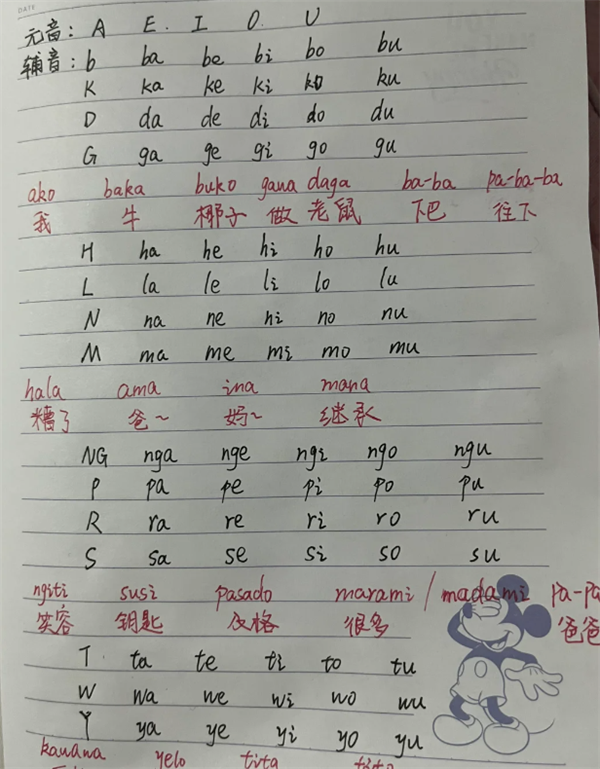 DATE
元音: A E. I O. U
辅音: b ba be bi bo bu
K ka ke ki ko ku
D da de di do du
G ga ge gi go gu
ako baka buko gana daga ba-ba pa-ba-ba
我 牛 椰子 做 老鼠 下巴 往下
H ha he hi ho hu
L la le li lo lu
N na ne hi no nu
M ma me mi mo mu
hala ama ina mana
糟了 爸~ 妈~ 继承
NG nga nge ngi ngo ngu
P pa pe pi po pu
R ra re ri ro ru
S sa se si so su
ngiti susi pasado marami / madami pa-pa
笑容 钥匙 及格 很多 爸爸
T ta te ti to tu
W wa we wi wo wu
Y ya ye yi yo yu
kauana yelo tita